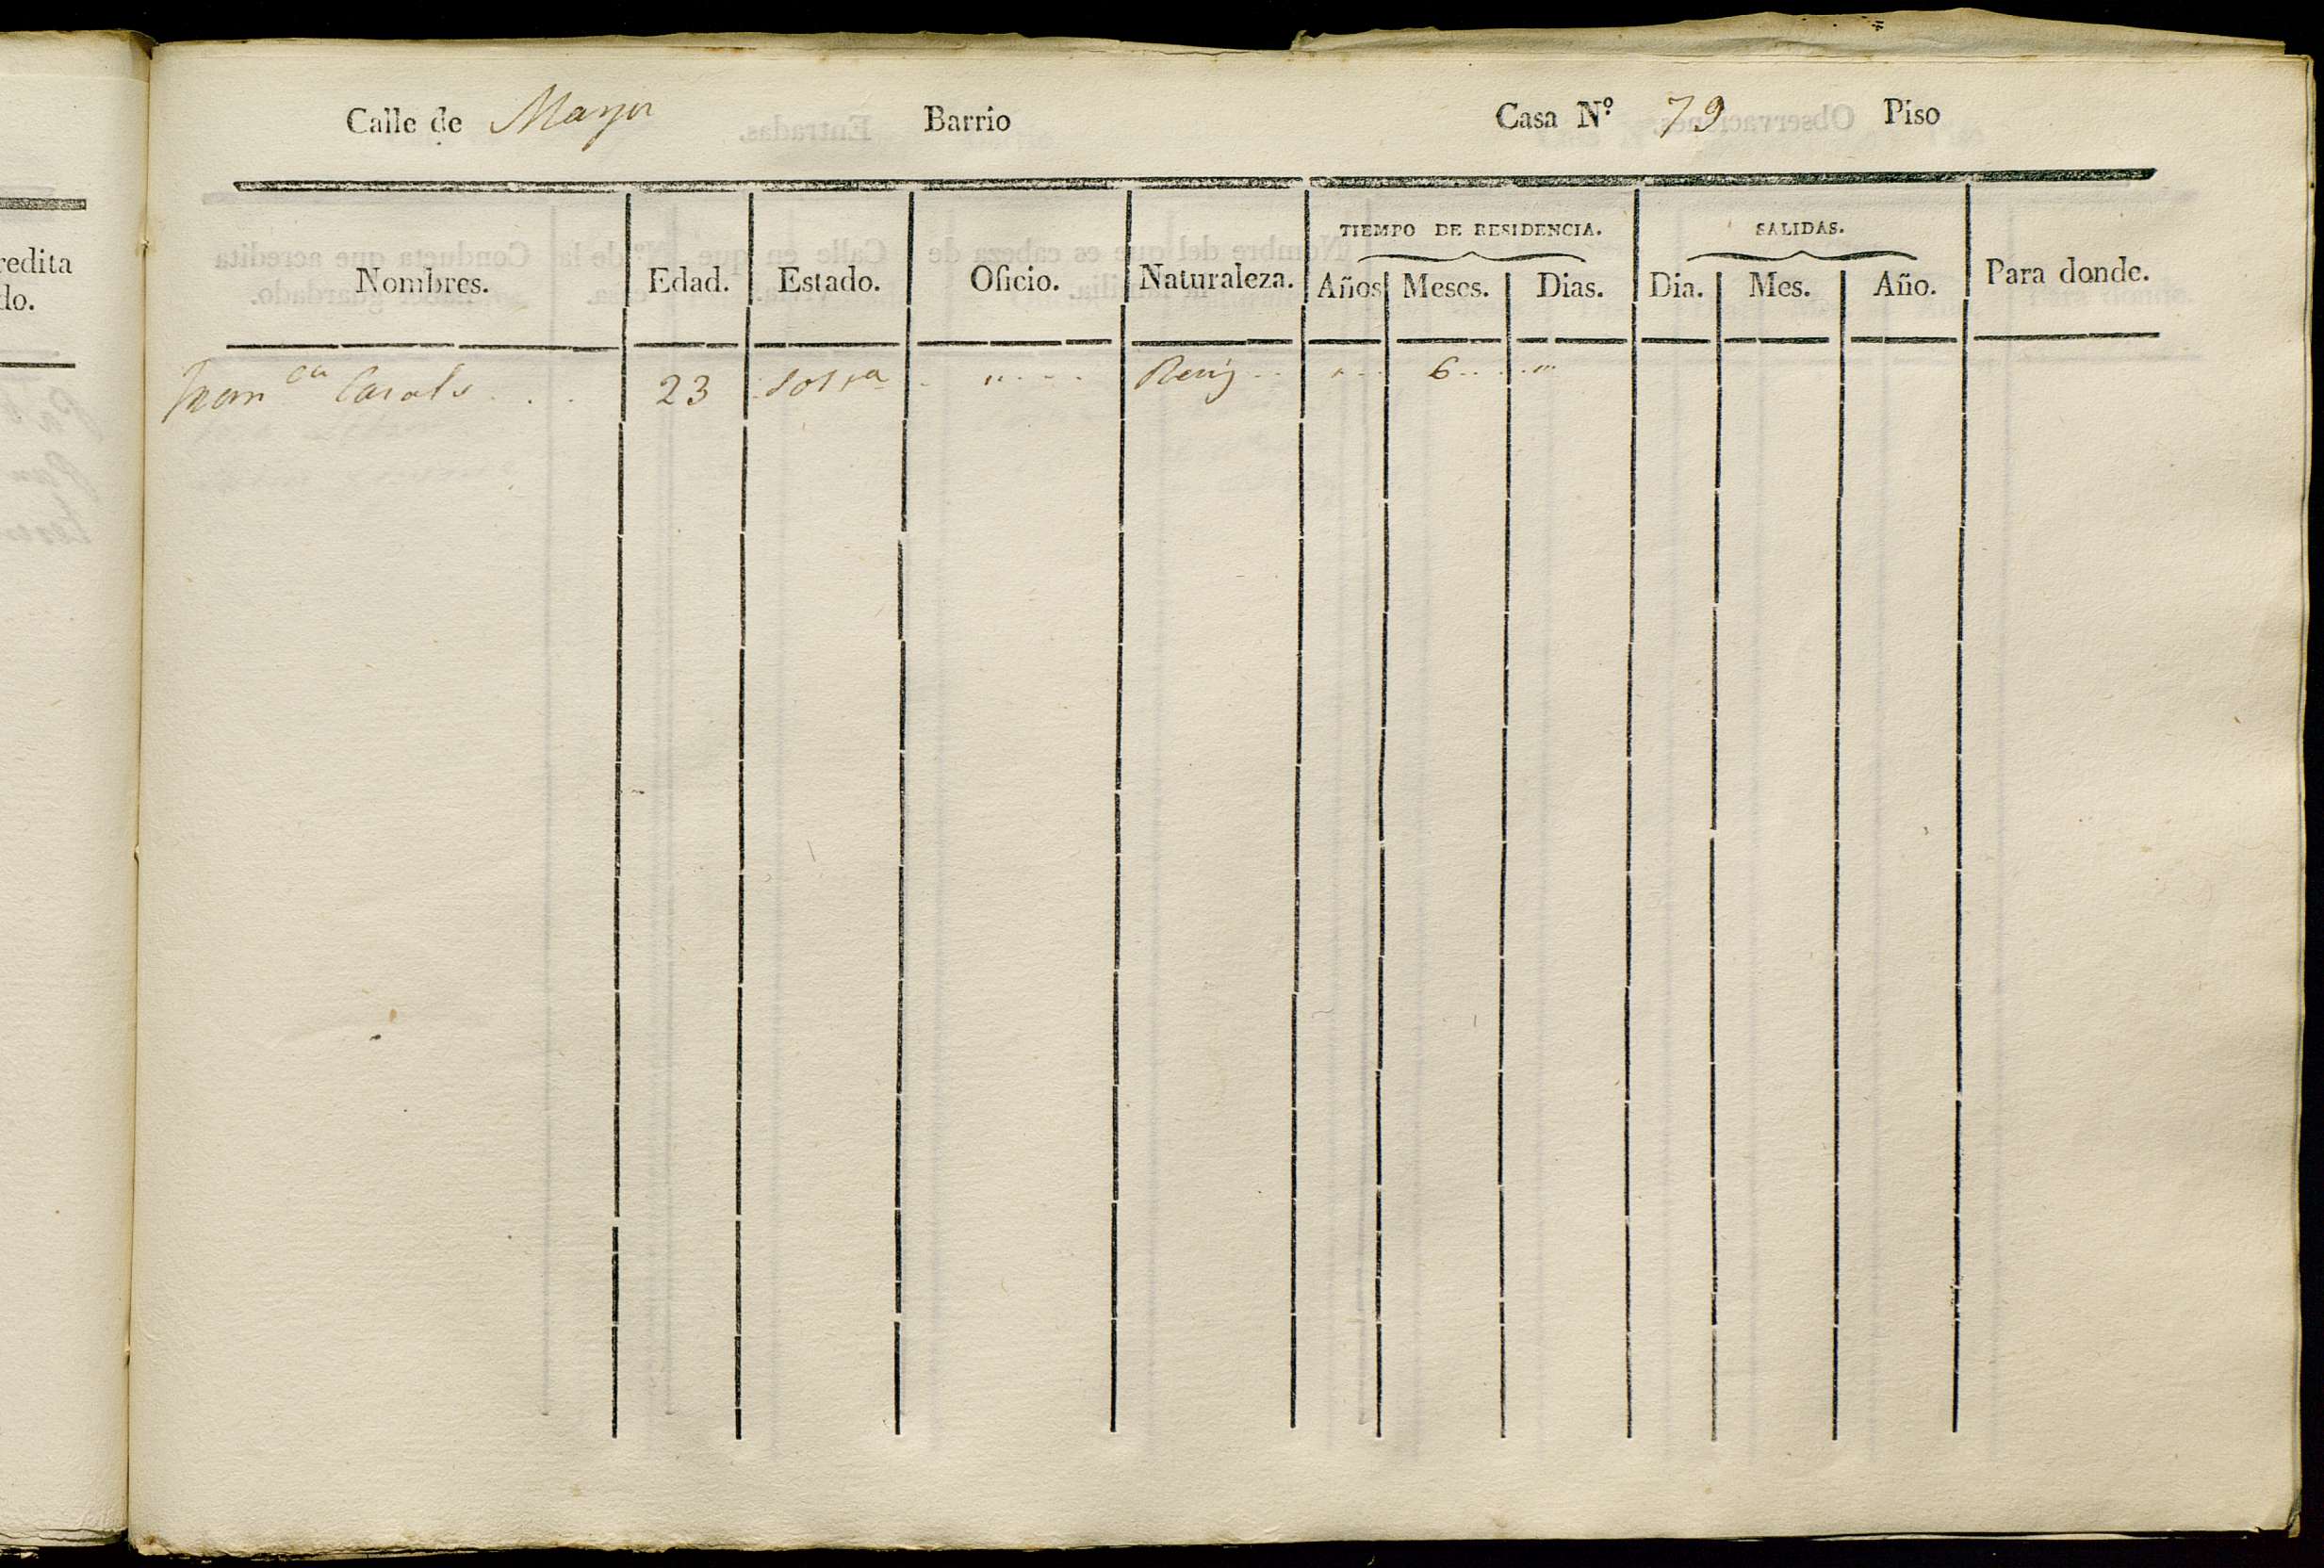 Calle de Mayor Barrio Casa N.º 79 Piso
TIEMPO DE RESIDENCIA. SALIDAS.
Nombres. Edad. Estado. Oficio. Naturaleza. Años Meses. Dias. Dia. Mes. Año. Para donde.
Fran ca Casals . . . 23 Solra . " . . . 6 . . . "
redita
do.